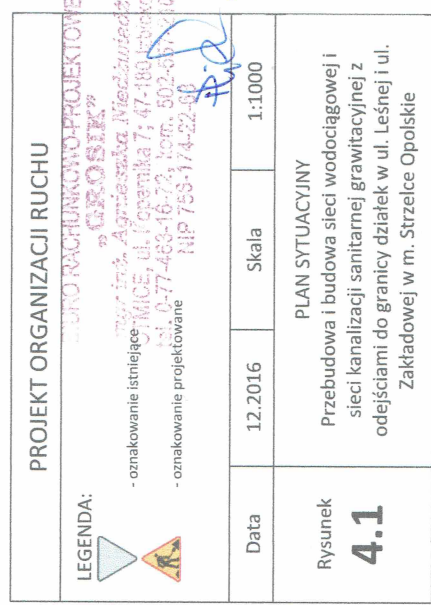 PROJEKT ORGANIZACJI RUCHU
LEGENDA:
- oznakowanie istniejące
- oznakowanie projektowane
BIURO RACHUNKOWO-PROJEKTOWE
"GROSIK"
mgr inż. Agnieszka Niedźwiedź
OTMICE, ul. Kopernika 7, 47-180
tel. 0-77-463-16-73, kom.
NIP 756-174-22
Data
12.2016
Skala
1:1000
Rysunek
4.1
PLAN SYTUACYJNY
Przebudowa i budowa sieci wodociągowej i
sieci kanalizacji sanitarnej grawitacyjnej z
odejściami do granicy działek w ul. Leśnej i ul.
Zakładowej w m. Strzelce Opolskie